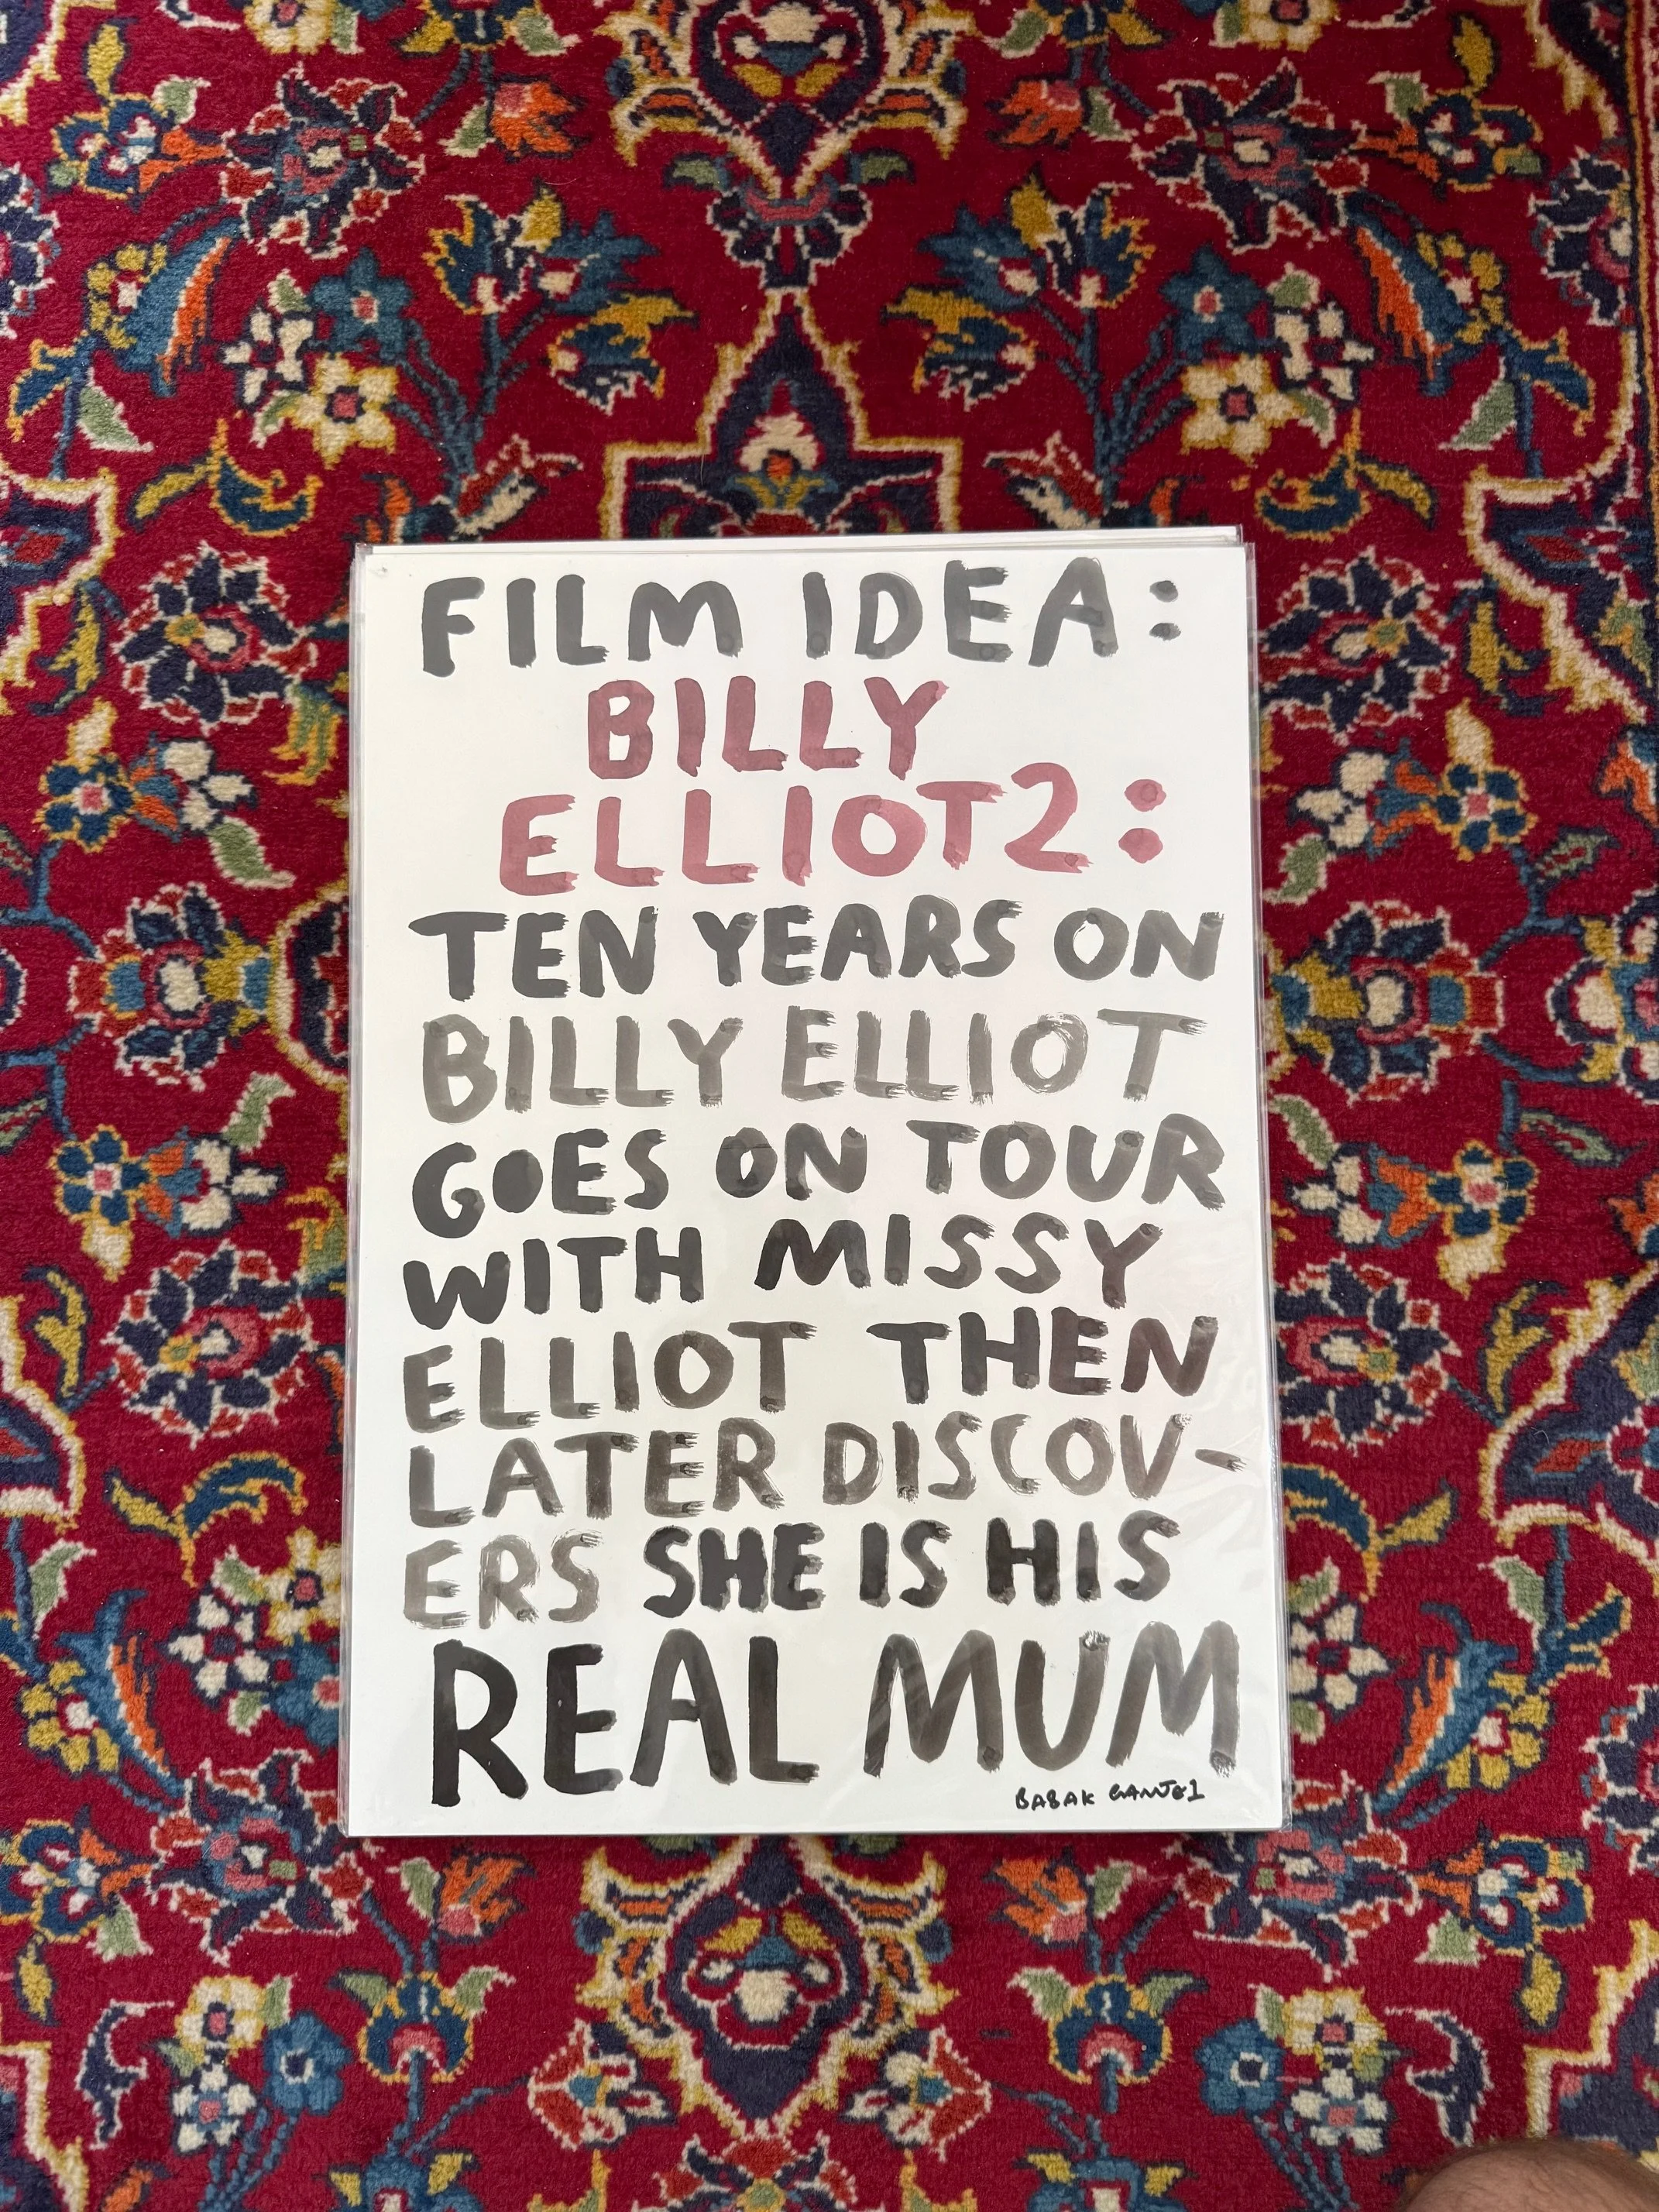 FILM IDEA:
BILLY
ELLIOT 2:
TEN YEARS ON
BILLY ELLIOT
GOES ON TOUR
WITH MISSY
ELLIOT THEN
LATER DISCOV-
ERS SHE IS HIS
REAL MUM
BABAK GANJEI